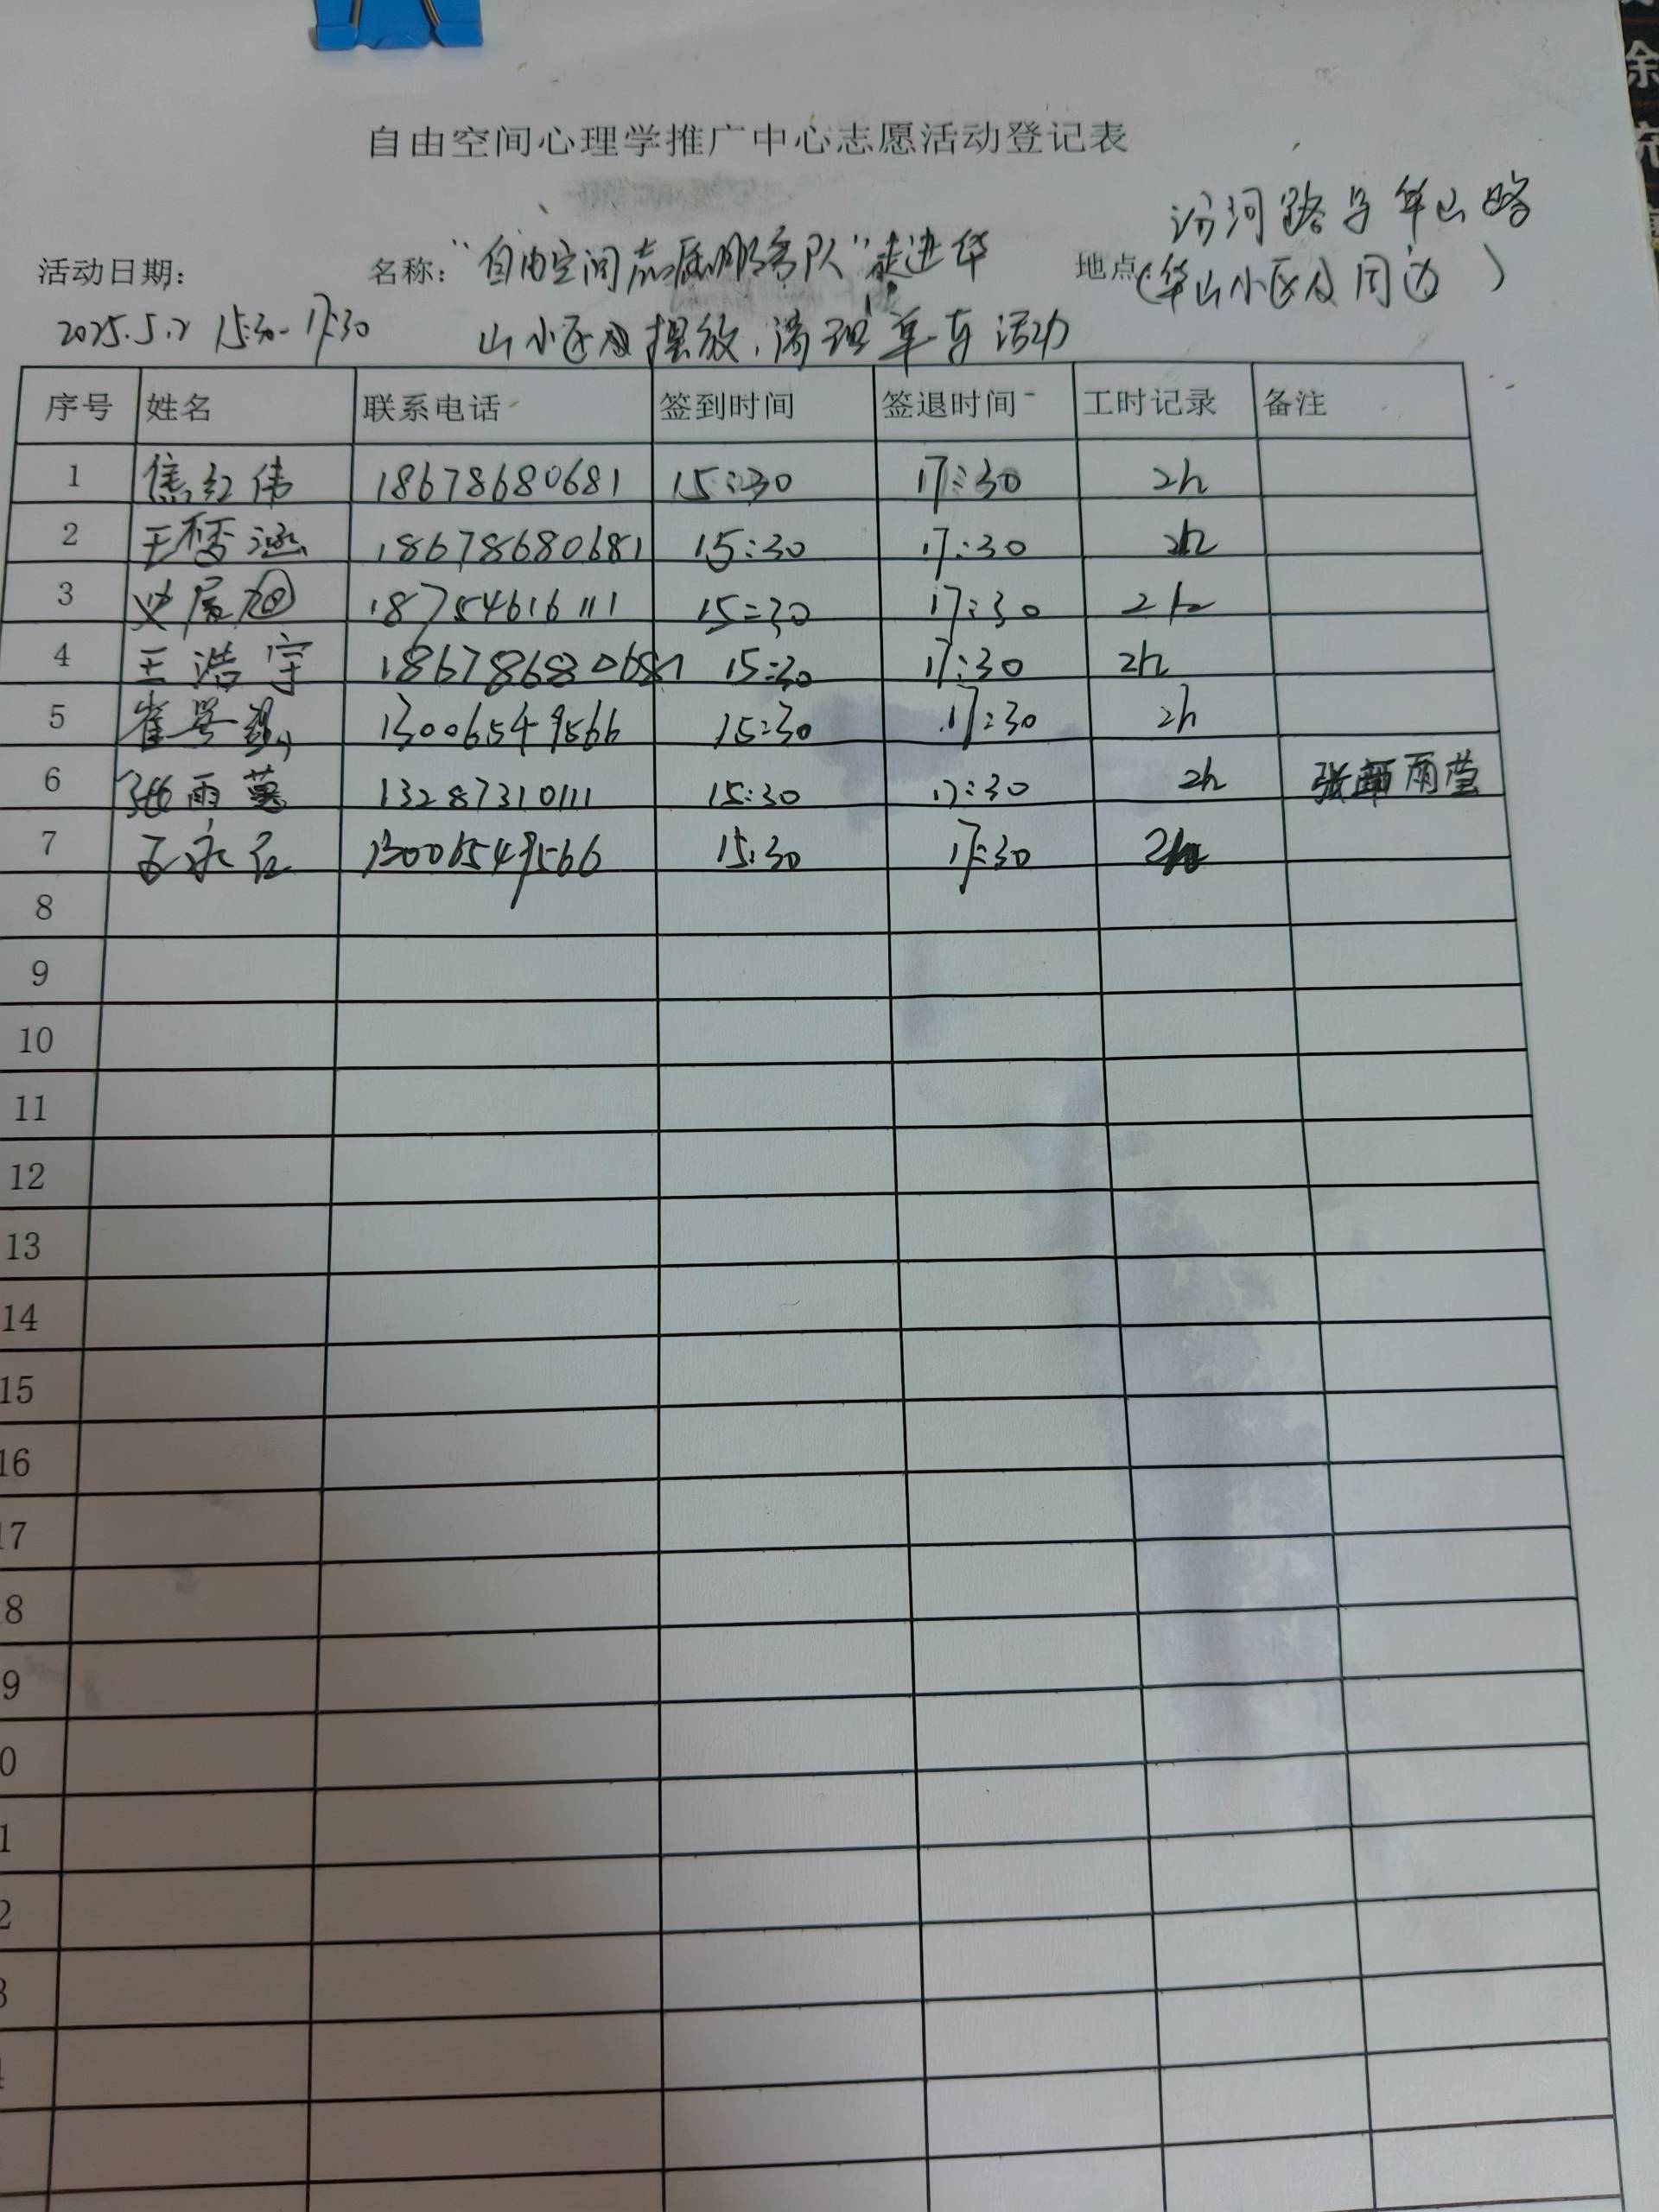 自由空间心理学推广中心志愿活动登记表
活动日期: 名称: "自由空间志愿服务队"走进华 地点: 汾河路与华山路
2025.5.2 15:30-17:30 山小区 摆放、清理单车活动 (华山小区及周边)
序号 姓名 联系电话 签到时间 签退时间 工时记录 备注
1 焦红伟 18678680681 15:30 17:30 2h
2 王梓涵 18678680681 15:30 17:30 2h
3 18754616111 15:30 17:30 2h
4 王浩宇 18678680681 15:30 17:30 2h
5 崔 13006549566 15:30 17:30 2h
6 张雨 13287310111 15:30 17:30 2h 张 雨莹
7 王永 13006549566 15:30 17:30 2h
8
9
10
11
12
13
14
15
16
17
8
9
0
1
2
3